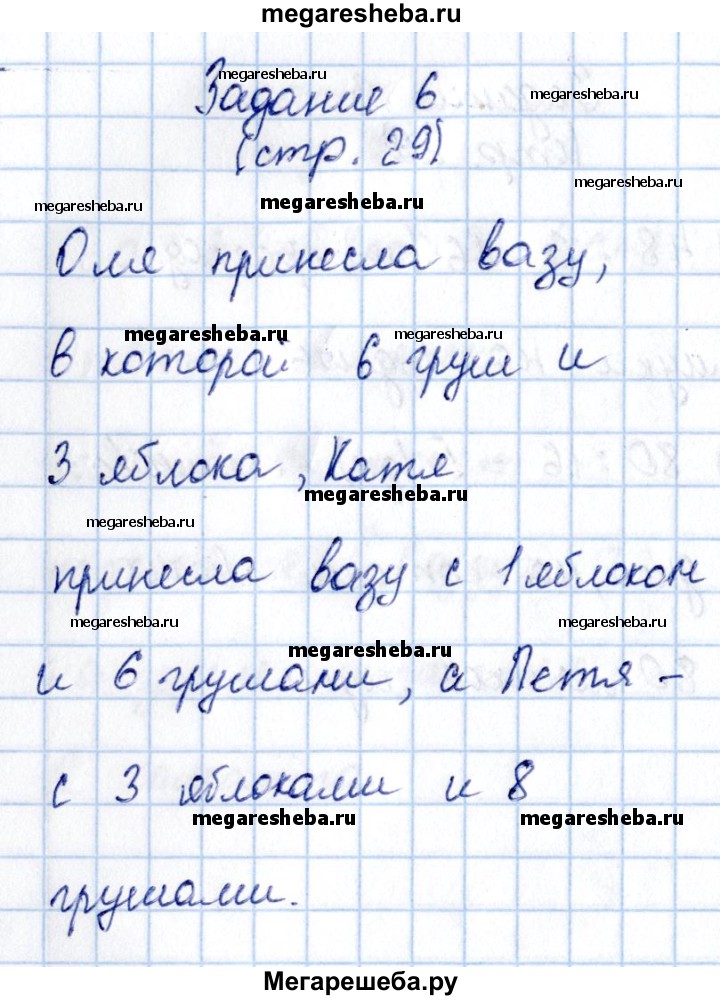 megaresheba.ru
Задание 6
megaresheba.ru
megaresheba.ru
(стр. 29)
megaresheba.ru
megaresheba.ru
megaresheba.ru
Оля принесла вазу,
megaresheba.ru
megaresheba.ru
в которой 6 груш и
3 яблока, Катя
megaresheba.ru
megaresheba.ru
принесла вазу с 1 яблоком
megaresheba.ru
megaresheba.ru
megaresheba.ru
и 6 грушами, а Петя -
с 3 яблоками и 8
megaresheba.ru
megaresheba.ru
грушами.
Мегарешеба.ру